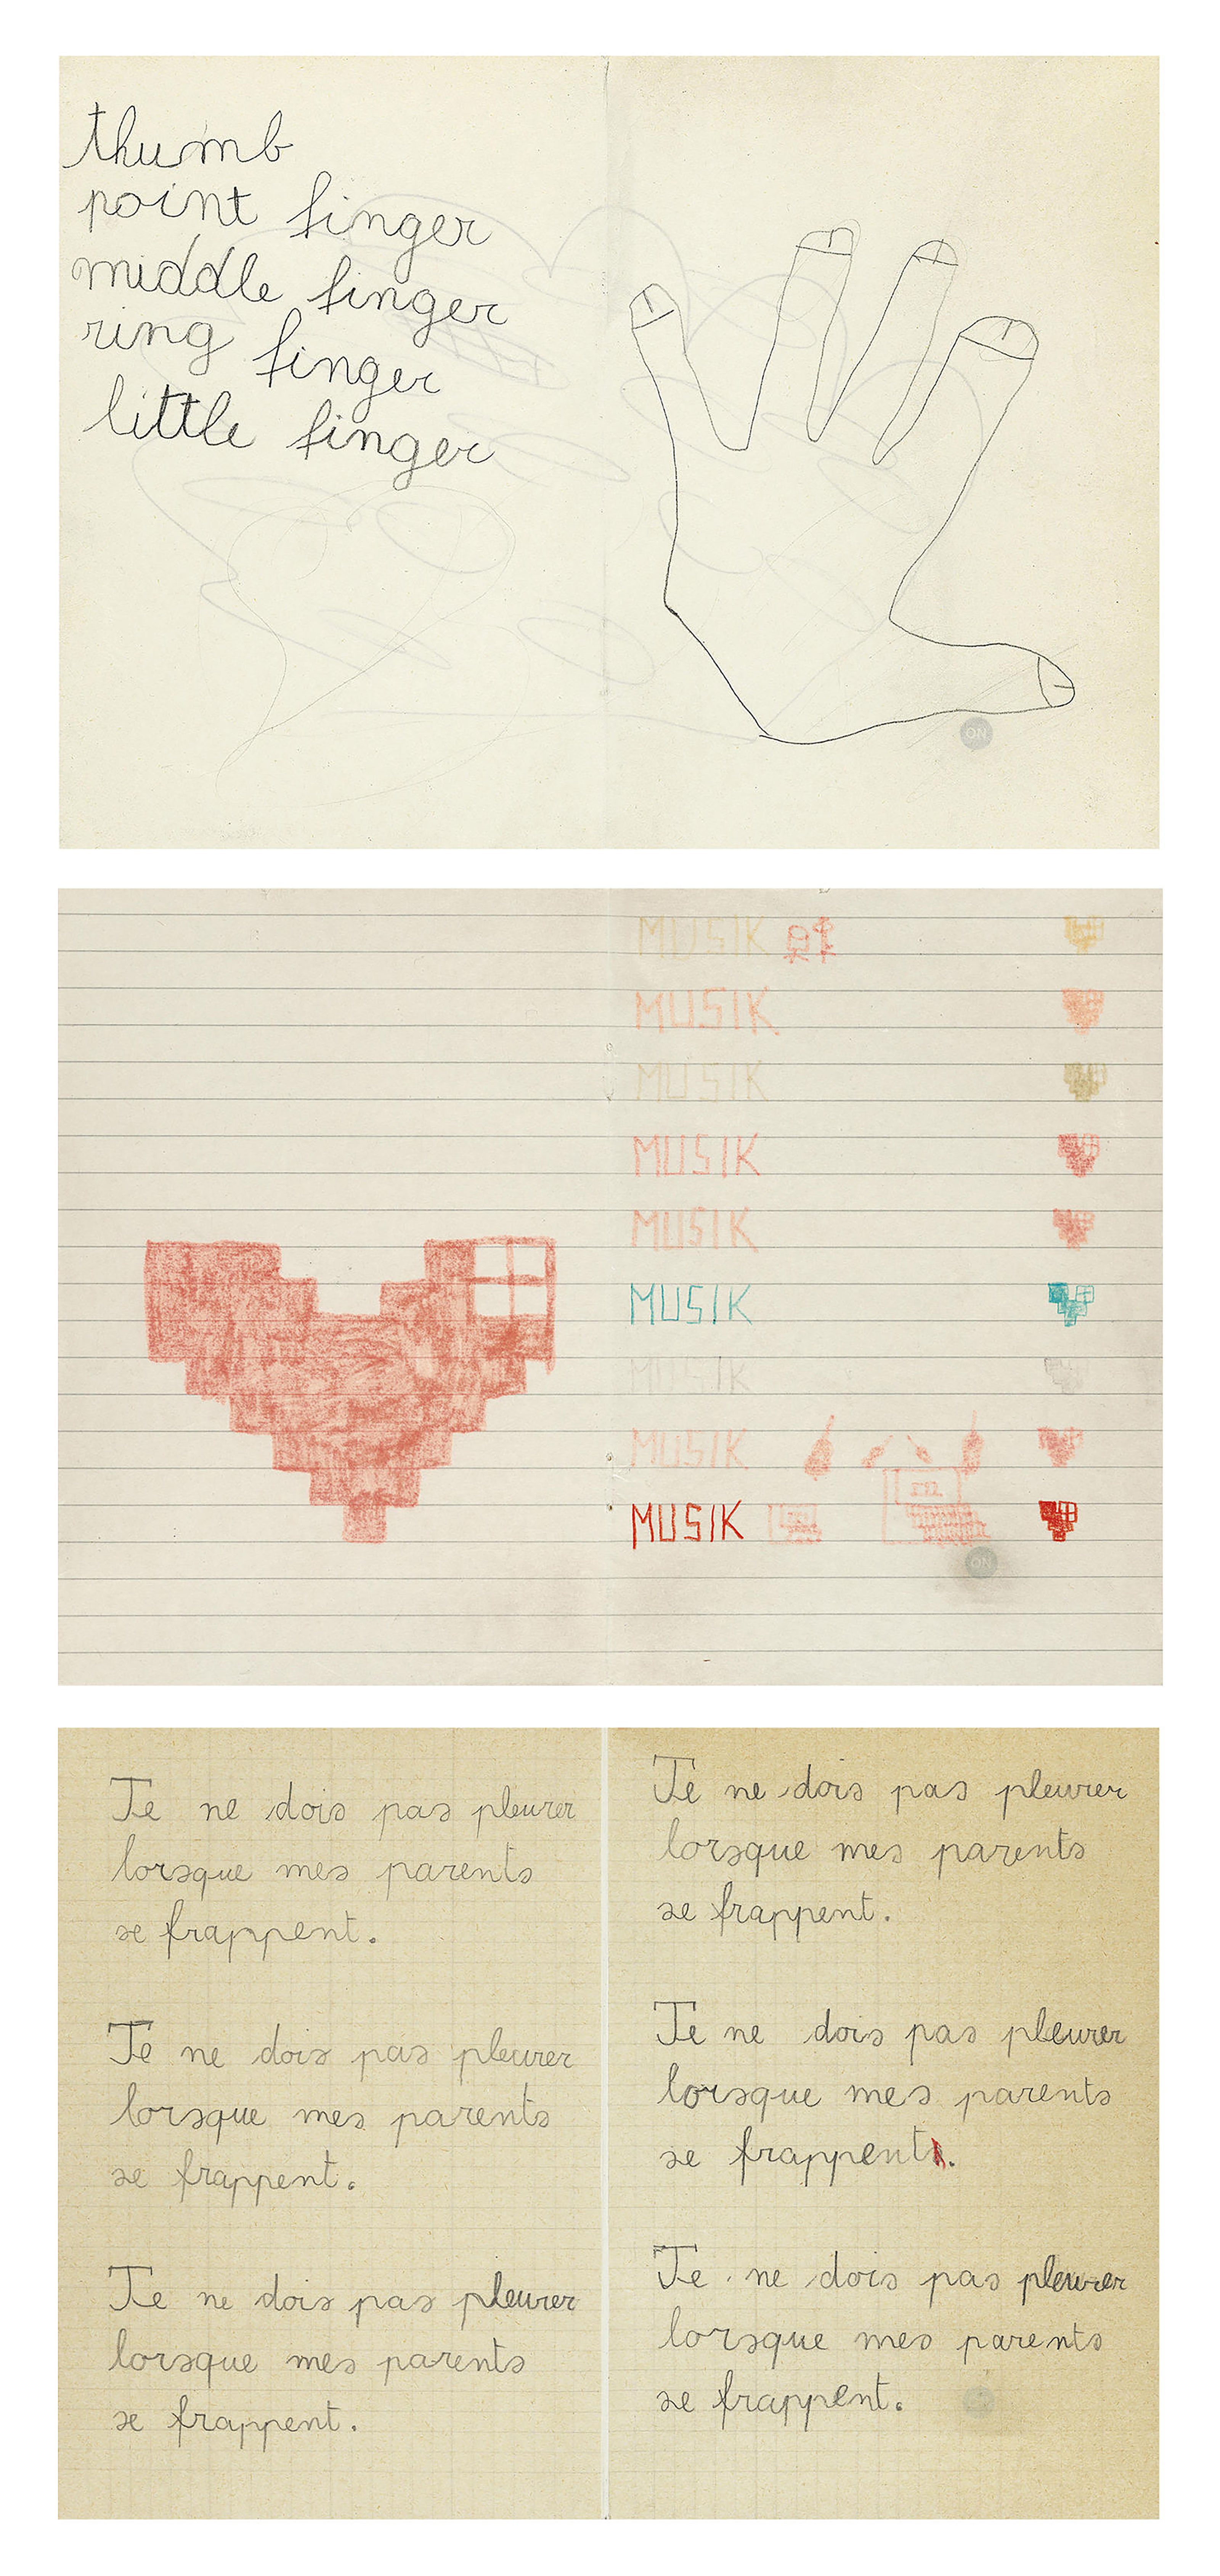 thumb
point finger
middle finger
ring finger
little finger
ON
MUSIK
MUSIK
MUSIK
MUSIK
MUSIK
MUSIK
MUSIK
MUSIK
MUSIK
ON
Je ne dois pas pleurer
lorsque mes parents
se frappent.
Je ne dois pas pleurer
lorsque mes parents
se frappent.
Je ne dois pas pleurer
lorsque mes parents
se frappent.
Je ne dois pas pleurer
lorsque mes parents
se frappent.
Je ne dois pas pleurer
lorsque mes parents
se frappent.
Je ne dois pas pleurer
lorsque mes parents
se frappent.